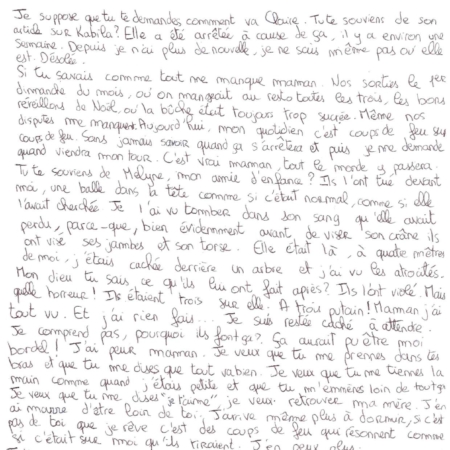 Je suppose que tu te demandes comment va Claire. Tu te souviens de son
article sur Kabila? Elle a été arrêtée à cause de ça, il y a environ une
semaine. Depuis je n'ai plus de nouvelle, je ne sais même pas où elle
est. Désolée.
Si tu savais comme tout me manque maman. Nos sorties le 1er
dimanche du mois, où on mangeait au resto toutes les trois, les bons
réveillons de Noël où la bûche était toujours trop sucrée. Même nos
disputes me manquent. Aujourd'hui, mon quotidien c'est coups de feu sur
coups de feu. Sans jamais savoir quand ça s'arrêtera et puis je me demande
quand viendra mon tour. C'est vrai maman, tout le monde y passera.
Tu te souviens de , mon amie d'enfance? Ils l'ont tué devant
moi, une balle dans la tête comme si c'était normal, comme si elle
l'avait cherchée. Je l'ai vu tomber dans son sang qu'elle avait
perdu, parce-que, bien évidemment avant de viser son crâne ils
ont visé ses jambes et son torse. Elle était là, à quatre mètres
de moi, j'étais cachée derrière un arbre et j'ai vu les atrocités.
Mon dieu tu sais ce qu'ils lui ont fait après? Ils l'ont violé. Mais
quelle horreur! Ils étaient trois sur elle. A trois putain! Maman j'ai
tout vu. Et j'ai rien fait... Je suis restée caché à attendre.
Je comprend pas, pourquoi ils font ça?. Ça aurait pu être moi
bordel! J'ai peur maman. Je veux que tu me prennes dans tes
bras et que tu me dises que tout va bien. Je veux que tu me tiennes la
main comme quand j'étais petite et que tu m'emmènes loin de tout ça
Je veux que tu me dises "je t'aime", je veux retrouver ma mère. J'en
ai marre d'être loin de toi. J'arrive même plus à dormir, si c'est
pas de toi que je rêve c'est des coups de feu qui résonnent comme
si c'était sur moi qu'ils tiraient. J'en peux plus.